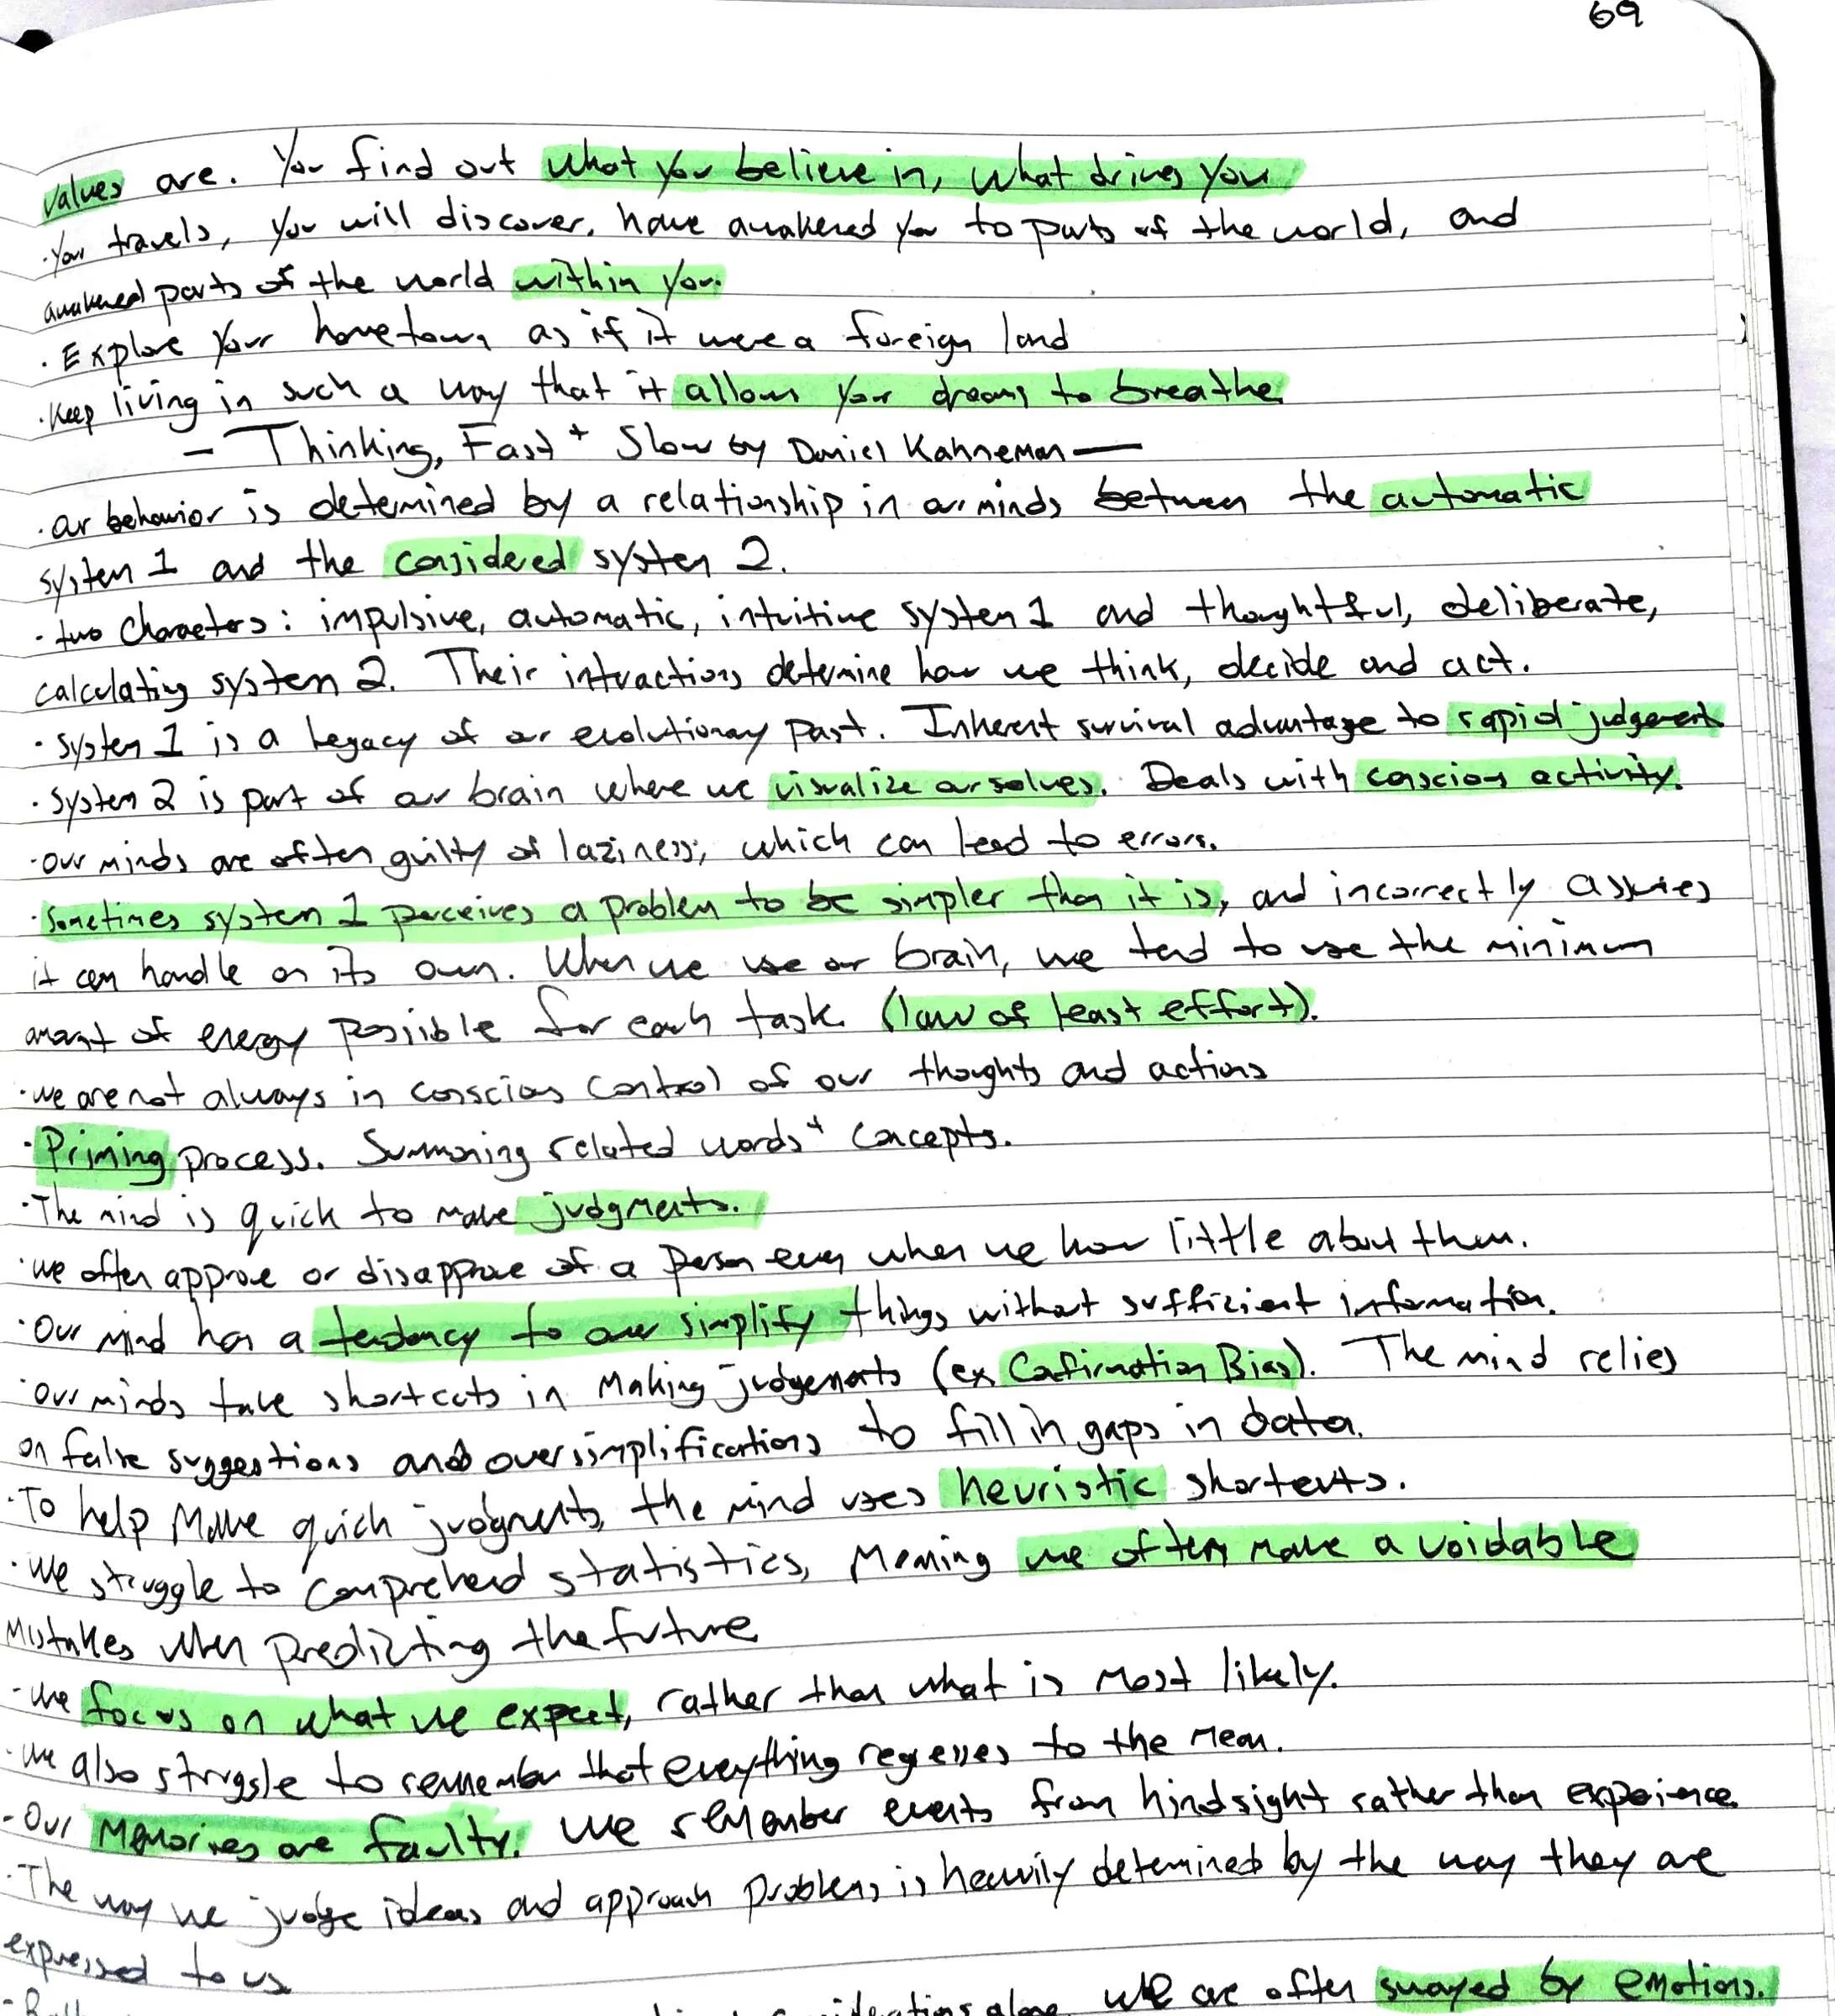 69
values are. You find out what you believe in, what drives you
· Your travels, you will discover, have awakened you to parts of the world, and
awakened parts of the world within you.
· Explore your hometown as if it were a foreign land
· Keep living in such a way that it allows your dreams to breathe.
— Thinking, Fast + Slow by Daniel Kahneman —
· our behavior is determined by a relationship in our minds between the automatic
system 1 and the considered system 2.
· two characters: impulsive, automatic, intuitive system 1 and thoughtful, deliberate,
calculating system 2. Their interactions determine how we think, decide and act.
· System 1 is a legacy of our evolutionary past. Inherent survival advantage to rapid judgement
· System 2 is part of our brain where we visualize ourselves. Deals with conscious activity.
· Our minds are often guilty of laziness, which can lead to errors.
· Sometimes system 1 perceives a problem to be simpler than it is, and incorrectly assumes
it can handle on its own. When we use our brain, we tend to use the minimum
amount of energy possible for each task (law of least effort).
· we are not always in conscious control of our thoughts and actions
· Priming process. Summoning related words + concepts.
· The mind is quick to make judgments.
· we often approve or disapprove of a person even when we know little about them.
· Our mind has a tendency to over simplify things without sufficient information.
· Our minds take shortcuts in making judgements (ex Confirmation Bias). The mind relies
on false suggestions and oversimplifications to fill in gaps in data.
· To help make quick judgments, the mind uses heuristic shortcuts.
· We struggle to comprehend statistics, meaning we often make avoidable
mistakes when predicting the future
- we focus on what we expect, rather than what is most likely.
- we also struggle to remember that everything regresses to the mean.
- Our memories are faulty. We remember events from hindsight rather than experience.
· The way we judge ideas and approach problems is heavily determined by the way they are
expressed to us
alone. We are often swayed by emotions.